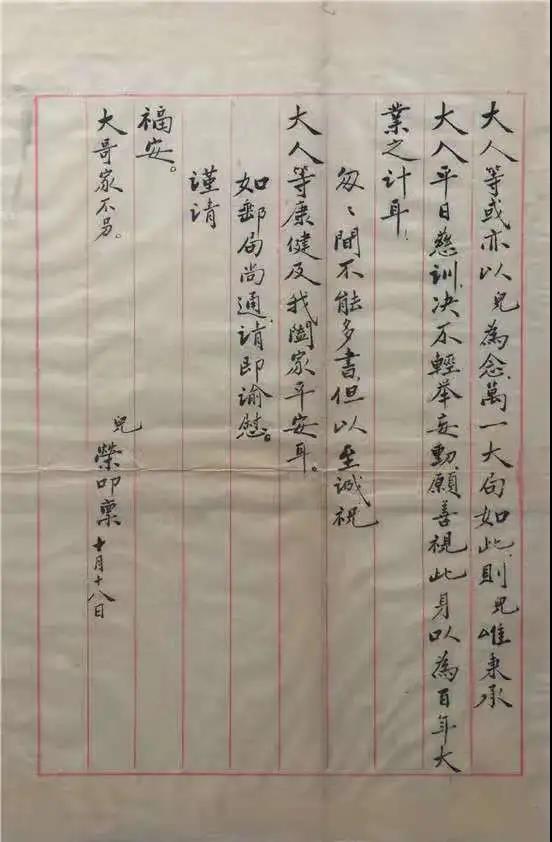 大人等或亦以兒為念萬一大局如此則兒唯秉承
大人平日慈訓、决不輕举妄動、願善視此身以為百年大
業之計耳！
匆〻間不能多書、但以至诚祝
大人等康健及我闔家平安耳。
如郵局尚通、请即諭慰。
謹请
福安。
大哥家不另。
兒榮叩禀 十月十八日